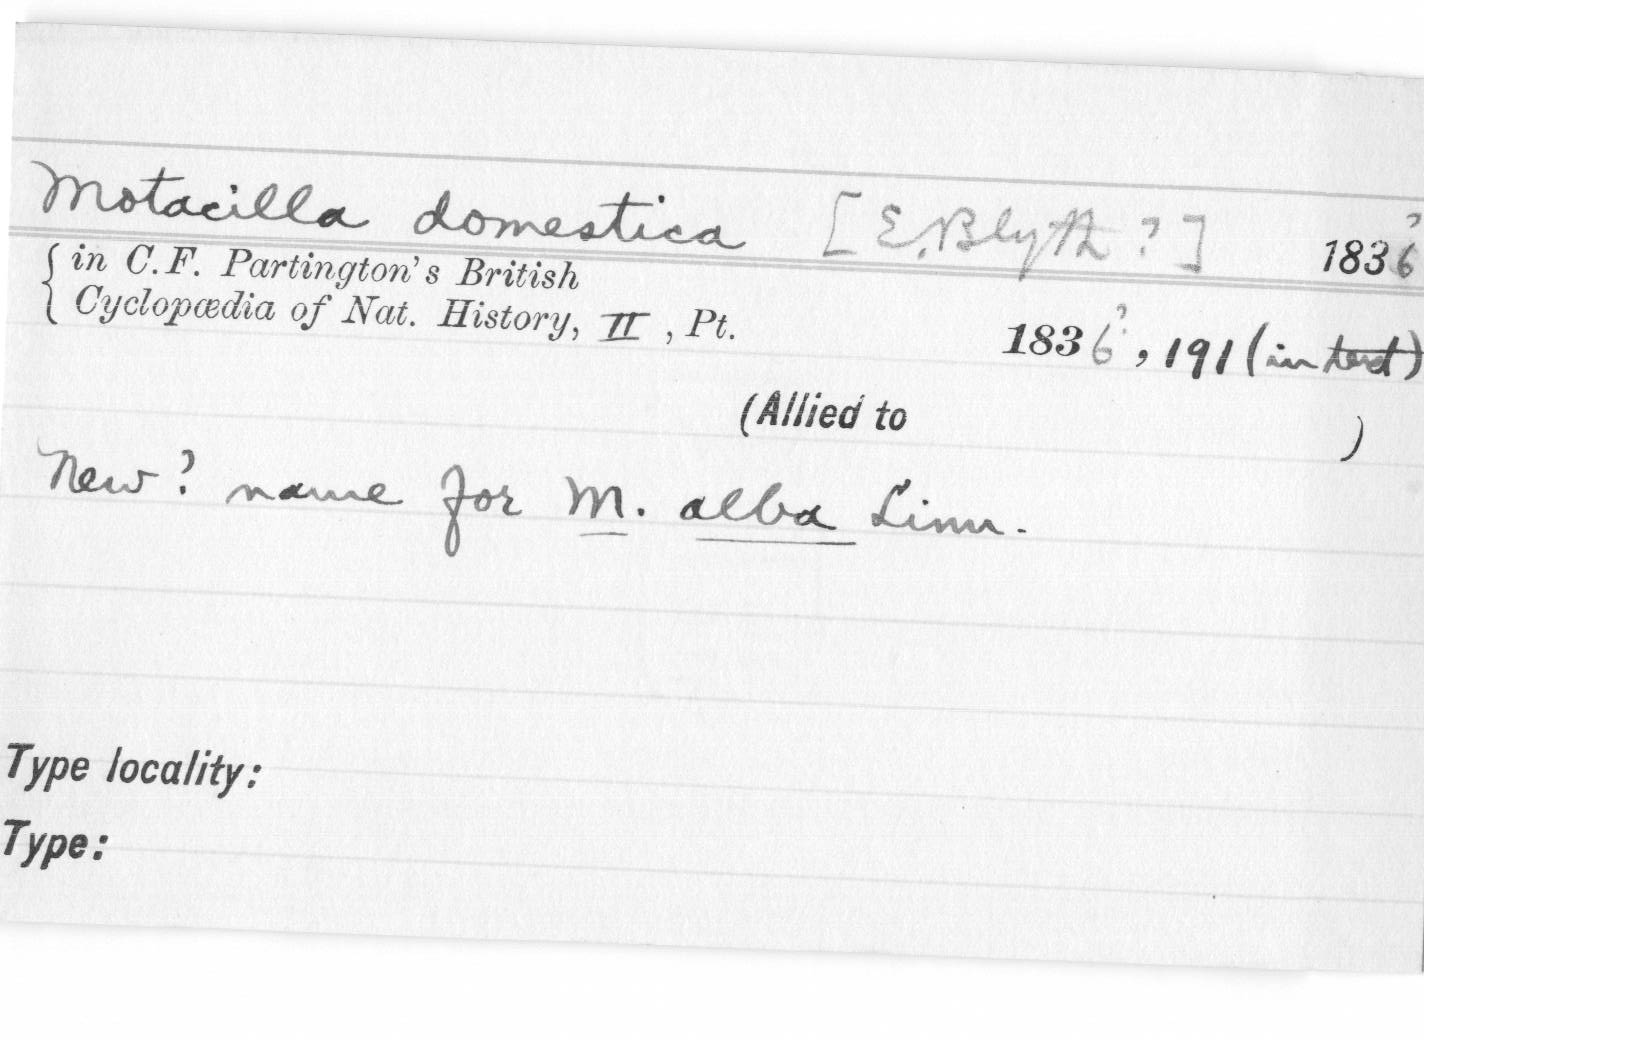 Motacilla domestica [E. Blyth?] 1836?
in C.F. Partington's British
Cyclopædia of Nat. History, II, Pt. 1836?, 191 (in text)
(Allied to )
New? name for M. alba Linn.
Type locality:
Type: